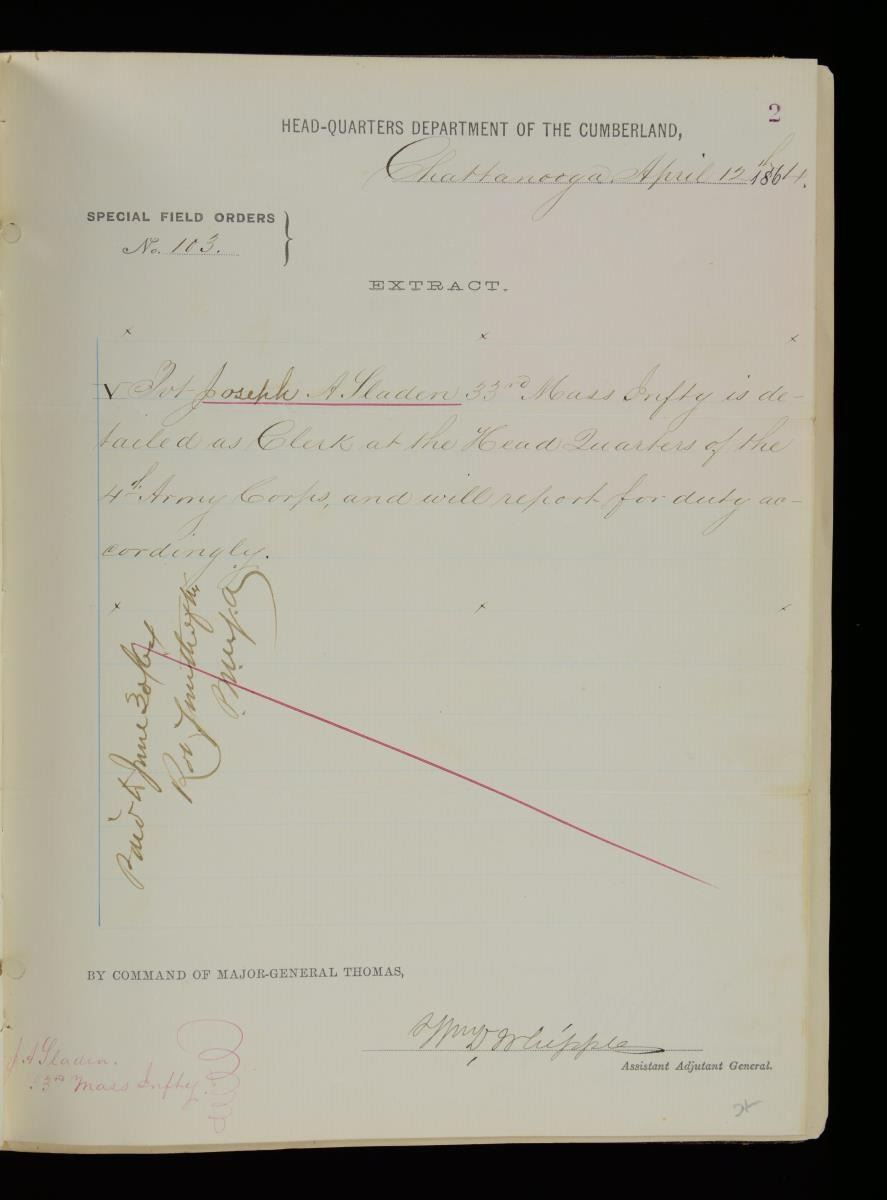 2
HEAD-QUARTERS DEPARTMENT OF THE CUMBERLAND,
Chattanooga April 12th 1864.
SPECIAL FIELD ORDERS
No. 103.
EXTRACT.
x x x
V Pvt Joseph A Sladen 33rd Mass Infty is de-
tailed as Clerk at the Head Quarters of the
4th Army Corps, and will report for duty ac-
cordingly.
x x x
Paid to June 30/64
Rob Smith
BY COMMAND OF MAJOR-GENERAL THOMAS,
Wm D Whipple
Assistant Adjutant General.
J A Sladen.
33rd Mass Infty.